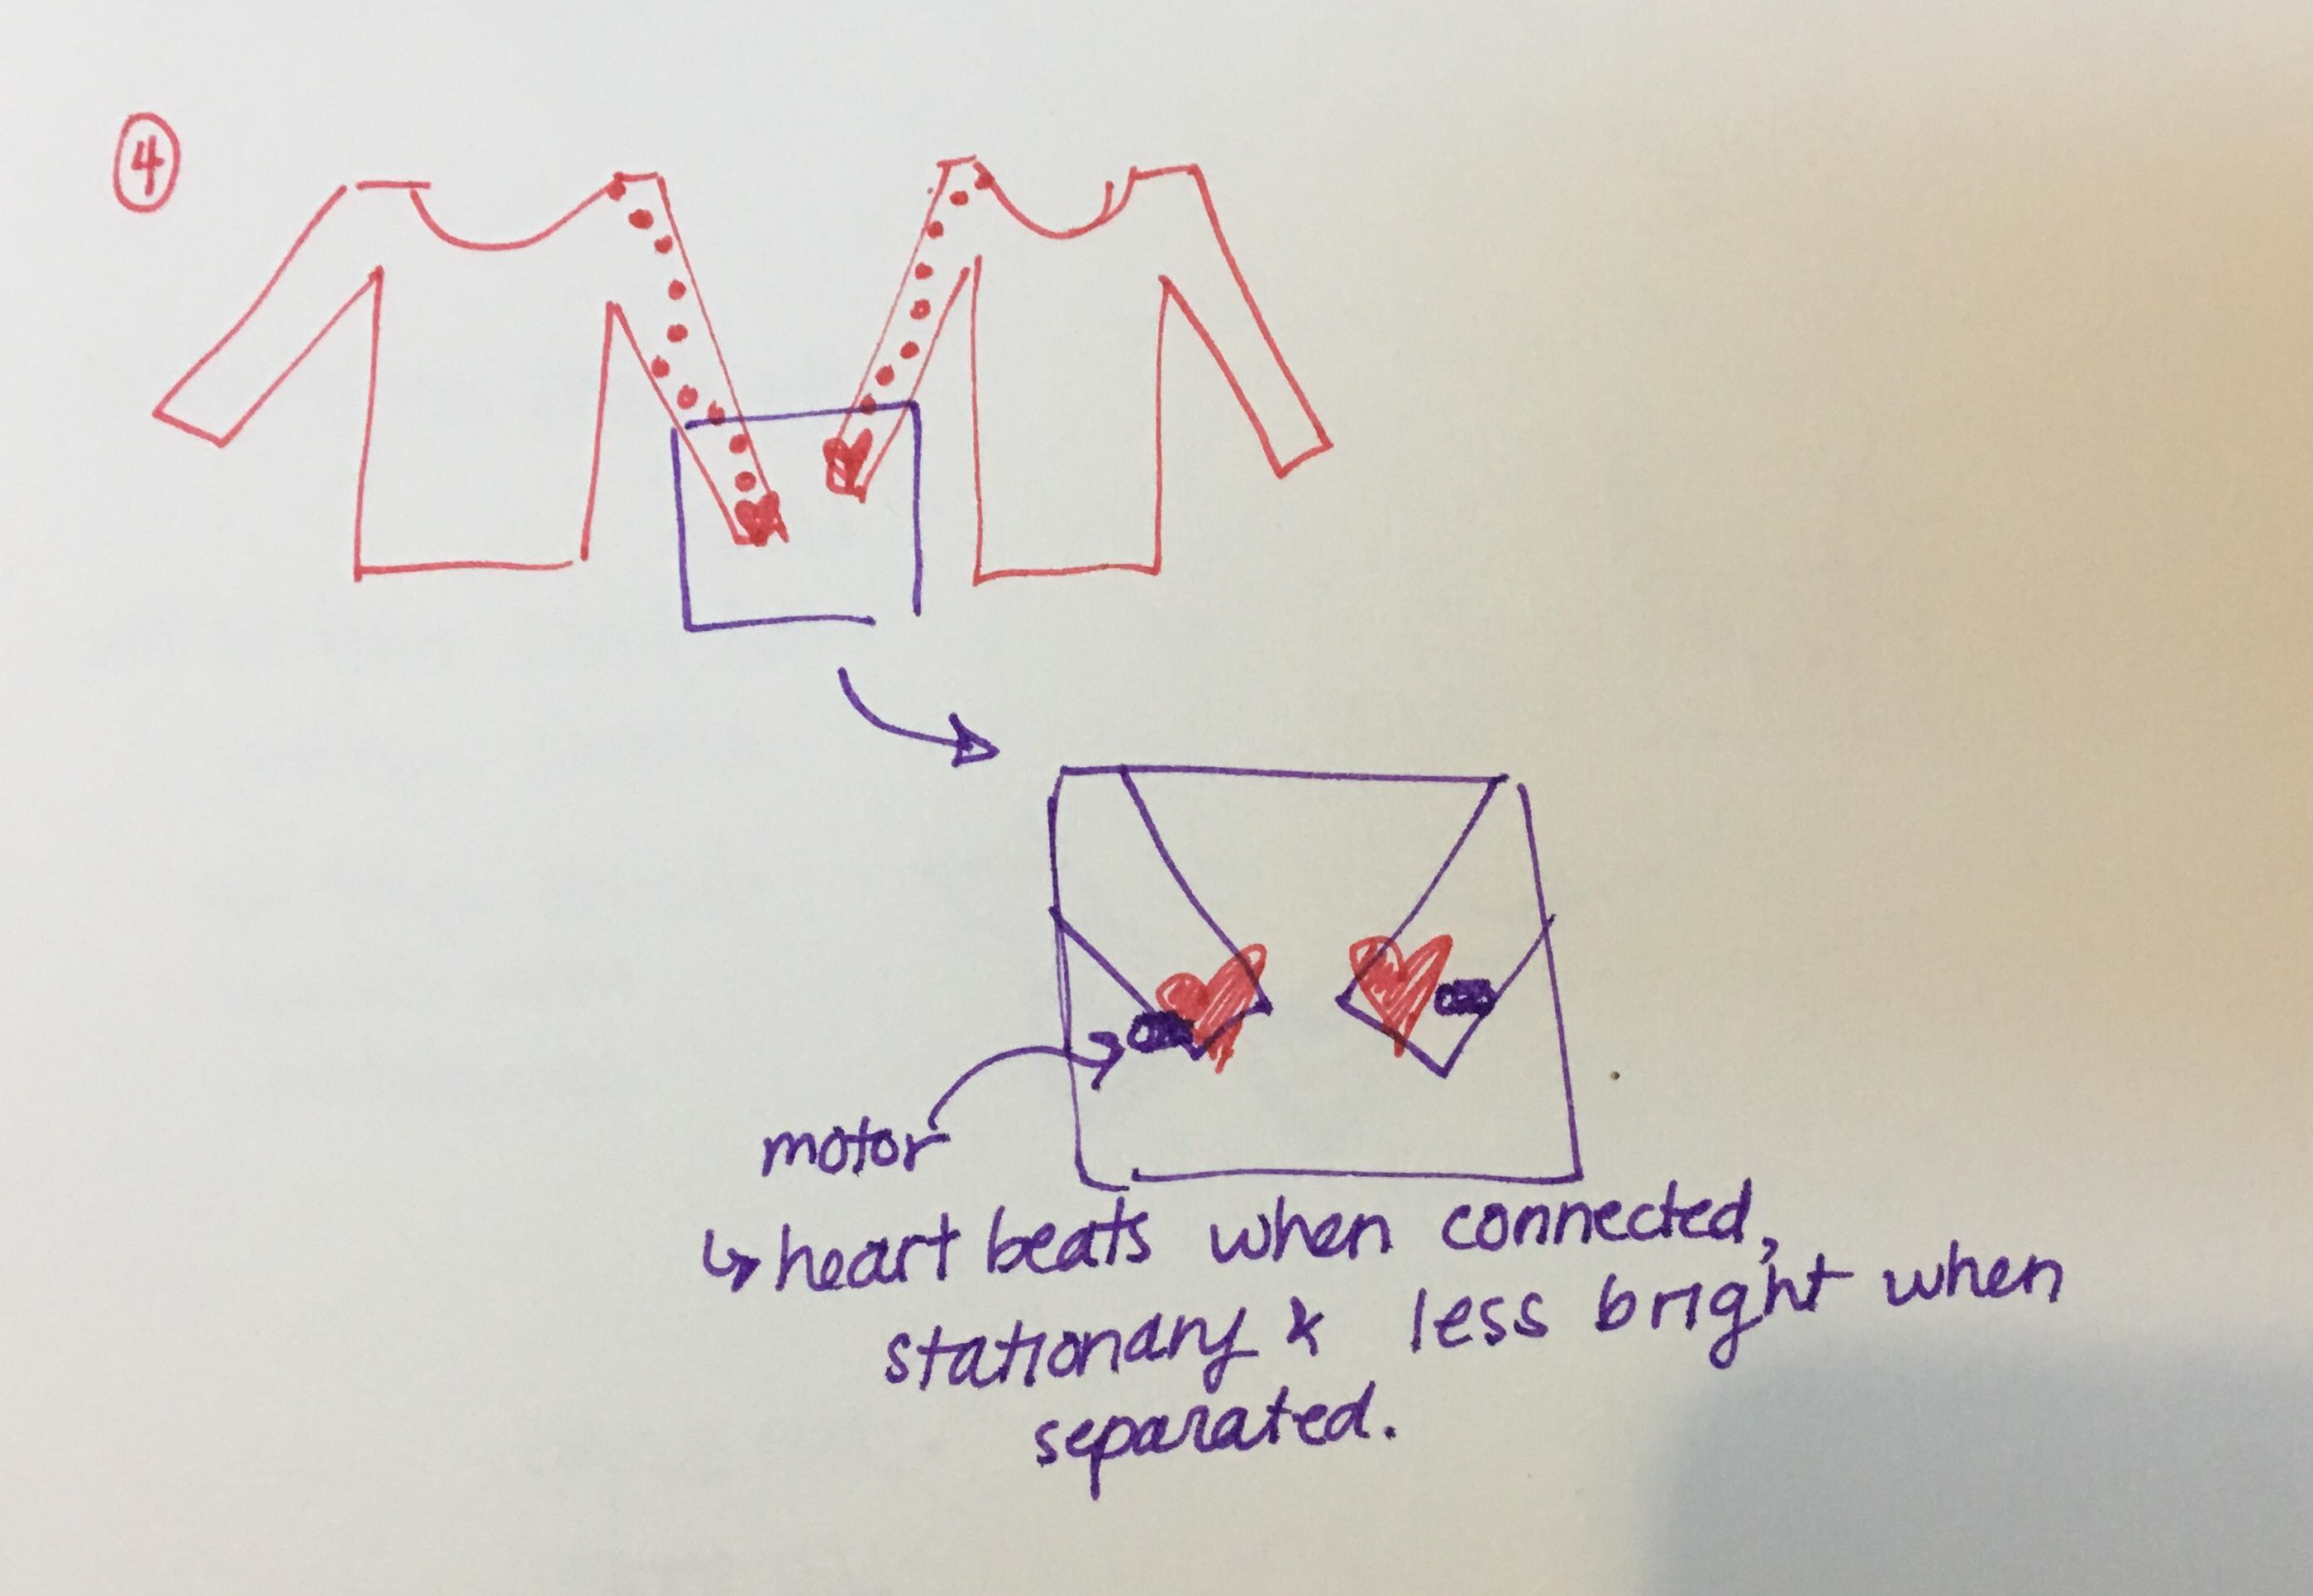 4
motor
↳ heart beats when connected,
stationary & less bright when
separated.